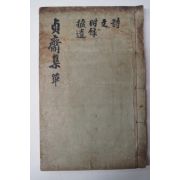 貞齋集 單
詩
文
附錄
摭遺